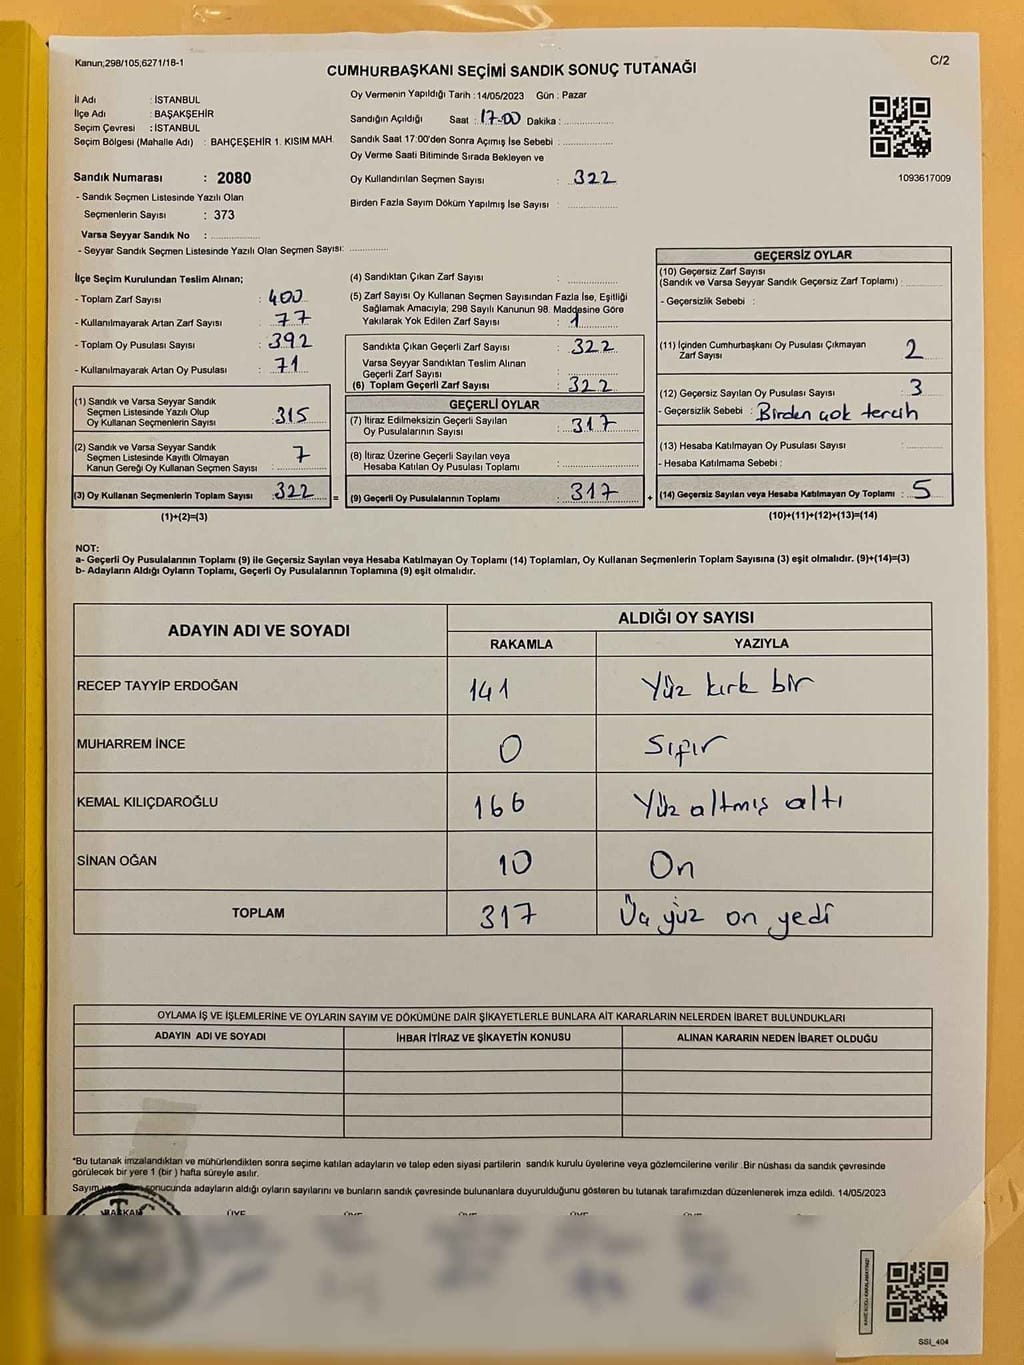 Kanun;298/105;6271/18-1
C/2
CUMHURBAŞKANI SEÇİMİ SANDIK SONUÇ TUTANAĞI
İl Adı : İSTANBUL
İlçe Adı : BAŞAKŞEHİR
Seçim Çevresi : İSTANBUL
Seçim Bölgesi (Mahalle Adı) : BAHÇEŞEHİR 1. KISIM MAH.
Sandık Numarası : 2080
- Sandık Seçmen Listesinde Yazılı Olan
Seçmenlerin Sayısı : 373
Varsa Seyyar Sandık No :
- Seyyar Sandık Seçmen Listesinde Yazılı Olan Seçmen Sayısı:
Oy Vermenin Yapıldığı Tarih : 14/05/2023 Gün : Pazar
Sandığın Açıldığı Saat : 17.00 Dakika :
Sandık Saat 17:00'den Sonra Açımış İse Sebebi :
Oy Verme Saati Bitiminde Sırada Bekleyen ve
Oy Kullandırılan Seçmen Sayısı : 322
Birden Fazla Sayım Döküm Yapılmış İse Sayısı :
1093617009
İlçe Seçim Kurulundan Teslim Alınan;
- Toplam Zarf Sayısı : 400
- Kullanılmayarak Artan Zarf Sayısı : 77
- Toplam Oy Pusulası Sayısı : 392
- Kullanılmayarak Artan Oy Pusulası : 71
(1) Sandık ve Varsa Seyyar Sandık
Seçmen Listesinde Yazılı Olup
Oy Kullanan Seçmenlerin Sayısı : 315
(2) Sandık ve Varsa Seyyar Sandık
Seçmen Listesinde Kayıtlı Olmayan
Kanun Gereği Oy Kullanan Seçmen Sayısı : 7
(3) Oy Kullanan Seçmenlerin Toplam Sayısı : 322
(1)+(2)=(3)
(4) Sandıktan Çıkan Zarf Sayısı :
(5) Zarf Sayısı Oy Kullanan Seçmen Sayısından Fazla İse, Eşitliği
Sağlamak Amacıyla; 298 Sayılı Kanunun 98. Maddesine Göre
Yakılarak Yok Edilen Zarf Sayısı : 1
Sandıkta Çıkan Geçerli Zarf Sayısı : 322
Varsa Seyyar Sandıktan Teslim Alınan
Geçerli Zarf Sayısı :
(6) Toplam Geçerli Zarf Sayısı : 322
GEÇERLİ OYLAR
(7) İtiraz Edilmeksizin Geçerli Sayılan
Oy Pusulalarının Sayısı : 317
(8) İtiraz Üzerine Geçerli Sayılan veya
Hesaba Katılan Oy Pusulası Toplamı :
= (9) Geçerli Oy Pusulalarının Toplamı : 317
GEÇERSİZ OYLAR
(10) Geçersiz Zarf Sayısı
(Sandık ve Varsa Seyyar Sandık Geçersiz Zarf Toplamı) :
- Geçersizlik Sebebi :
(11) İçinden Cumhurbaşkanı Oy Pusulası Çıkmayan
Zarf Sayısı : 2
(12) Geçersiz Sayılan Oy Pusulası Sayısı : 3
- Geçersizlik Sebebi : Birden çok tercih
(13) Hesaba Katılmayan Oy Pusulası Sayısı :
- Hesaba Katılmama Sebebi :
+ (14) Geçersiz Sayılan veya Hesaba Katılmayan Oy Toplamı : 5
(10)+(11)+(12)+(13)=(14)
NOT:
a- Geçerli Oy Pusulalarının Toplamı (9) ile Geçersiz Sayılan veya Hesaba Katılmayan Oy Toplamı (14) Toplamları, Oy Kullanan Seçmenlerin Toplam Sayısına (3) eşit olmalıdır. (9)+(14)=(3)
b- Adayların Aldığı Oyların Toplamı, Geçerli Oy Pusulalarının Toplamına (9) eşit olmalıdır.
ADAYIN ADI VE SOYADI
ALDIĞI OY SAYISI
RAKAMLA YAZIYLA
RECEP TAYYİP ERDOĞAN 141 Yüz kırk bir
MUHARREM İNCE 0 Sıfır
KEMAL KILIÇDAROĞLU 166 Yüz altmış altı
SİNAN OĞAN 10 On
TOPLAM 317 Üç yüz on yedi
OYLAMA İŞ VE İŞLEMLERİNE VE OYLARIN SAYIM VE DÖKÜMÜNE DAİR ŞİKAYETLERLE BUNLARA AİT KARARLARIN NELERDEN İBARET BULUNDUKLARI
ADAYIN ADI VE SOYADI İHBAR İTİRAZ VE ŞİKAYETİN KONUSU ALINAN KARARIN NEDEN İBARET OLDUĞU
*Bu tutanak imzalandıktan ve mühürlendikten sonra seçime katılan adayların ve talep eden siyasi partilerin sandık kurulu üyelerine veya gözlemcilerine verilir. Bir nüshası da sandık çevresinde
görülecek bir yere 1 (bir) hafta süreyle asılır.
Sayım sonucunda adayların aldığı oyların sayılarını ve bunların sandık çevresinde bulunanlara duyurulduğunu gösteren bu tutanak tarafımızdan düzenlenerek imza edildi. 14/05/2023
BAŞKAN ÜYE ÜYE ÜYE ÜYE
SSI_404